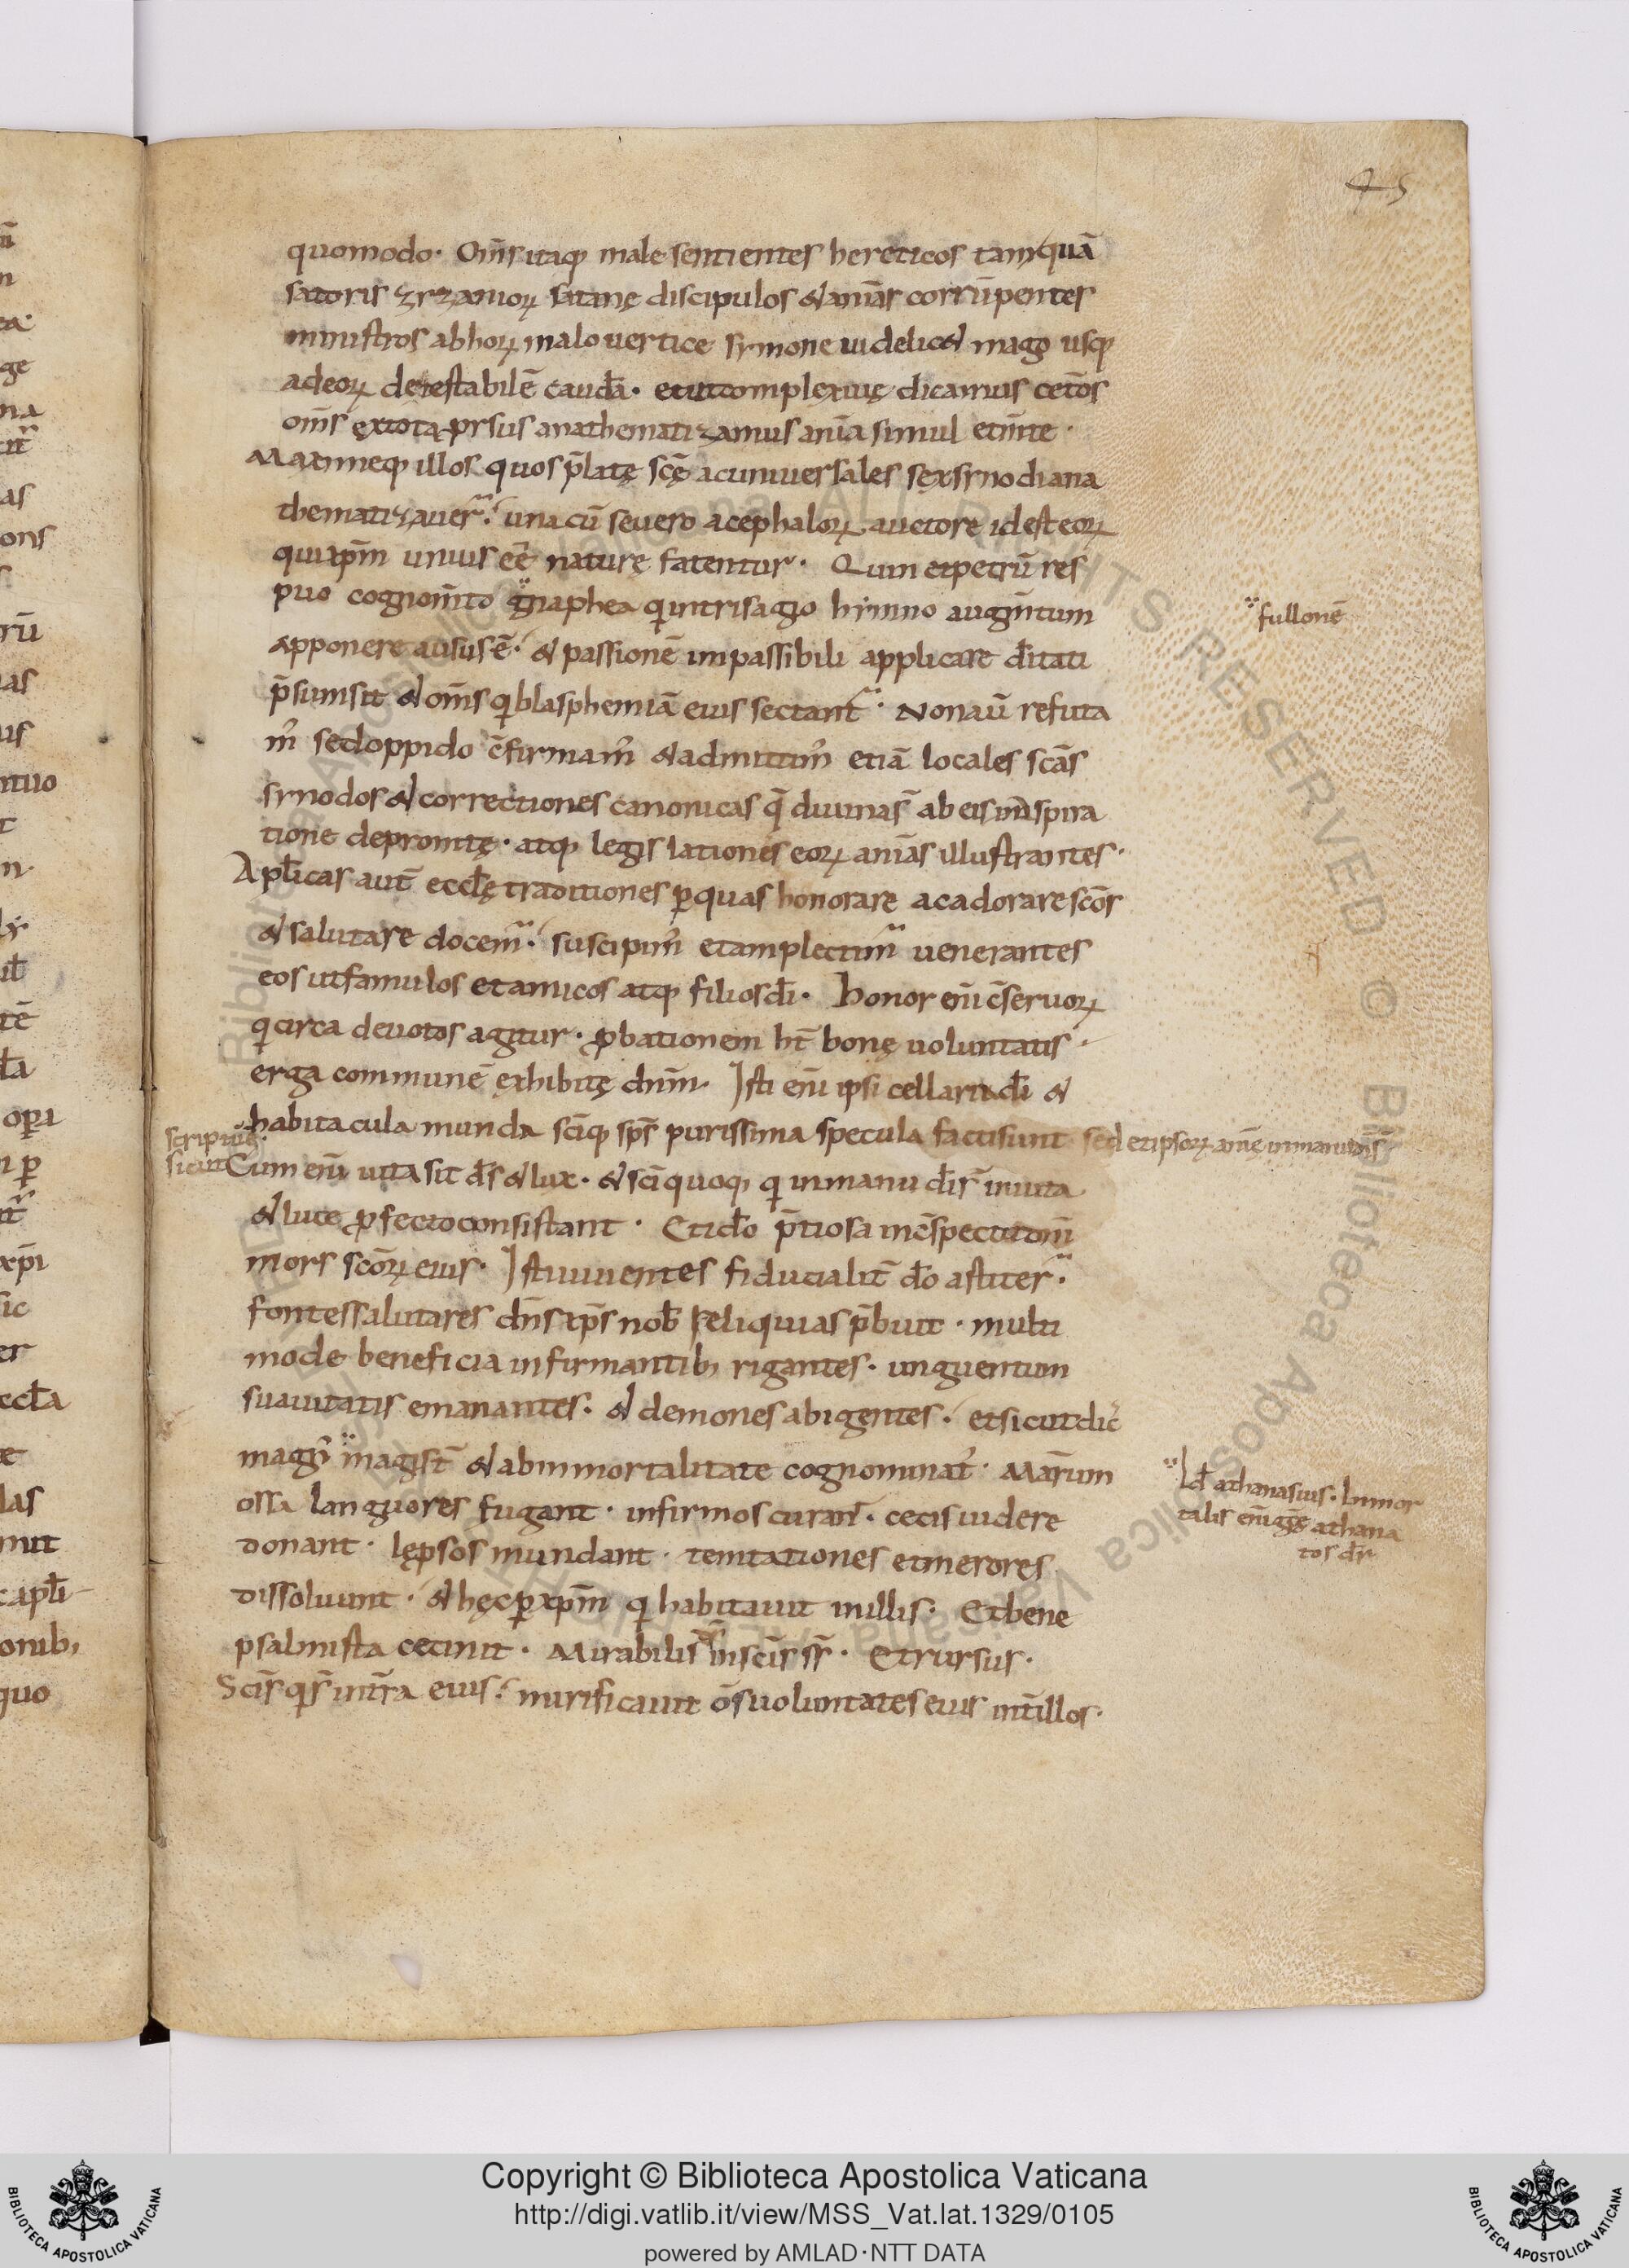 45
quomodo· Om̄s itaq; male sentientes hereticos tamquā
satoris zyzaniorꝝ satanę discipulos & anim̄as corrūpentes
ministros ab horꝝ malo uertice symone uidelic& mago usq;
ad eorꝝ detestabilē caudā· et ut complexiuę dicamus cet̄os
om̄s ex tota prorsus anathematizamus anim̄a simul et m̄te·
Maximeq; illos quos p̄latę sc̄ę ac uniuersales sex synodi ana
thematizauer̄· una cū seuero acephalorꝝ auctore id est eorꝝ
qui xp̄m unius ee̅ naturę fatentur· Qum et petrū res
puo cognom̄to gnaphea qi in trisagio hymno augm̄tum
apponere ausus ē· & passionē impassibili applicare d̄itati
p̄sumsit & om̄s qi blasphemiā eius sectant̄· Non aū refuta
m̄ sed oppido c̄firmam̄ & admittim̄ etiā locales sc̄as
synodos & correctiones canonicas q̄ diuinas ab eis inspira
tione depromtę· atq; legis lationes eorꝝ anim̄as illustrantes·
Apl̄icas aut̄ eccl̄ę traditiones ꝑ quas honorare ac adorare sc̄os
& salutare docem̄· suscipim̄ et amplectim̄ uenerantes
eos ut famulos et amicos atq; filios d̄i· Honor eni̅ c̄seruorꝝ
qi circa deuotos agitur· ꝓbationem ht̄ bonę uoluntatis·
erga communē exhibitę dn̄m· Isti eni̅ ipsi cellaria d̄i &
habitacula munda sc̄iq; sp̄s purissima specula facti sunt sed et ipsorꝝ anim̄ę in manu dn̄i s̄
scriptū ē·
sicut
Cum eni̅ uita sit d̄s & lux· & sc̄i quoq; qi in manu d̄i s̄ in uita
& luce ꝓfecto consistant· Et id̄o p̄tiosa in c̄spectu dn̄i
mors sc̄orꝝ eius· Isti uiuentes fiducialit̄ d̄o astiter̄·
fontes salutares dn̄s xp̄s nob̄ reliquias p̄buit· multi
mode beneficia infirmantib; rigantes· unguentum
suauitatis emanantes· & demones abigentes· et sicut dic̄
magn̄ magist̄ & ab inmortalitate cognominat̄· Mar̄um
ossa languores fugant· infirmos curan̄t· cecis uidere
donant· lępsos mundant· temtationes et merores
dissoluunt· & hęc ꝑ xp̄m qi habitauit in illis· Et bene
psalmista cecinit· Mirabilis d̄s in sc̄is s̄s· Et rursus·
Sc̄is qi s̄ in t̄ra eius· mirificauit om̄s uoluntates eius int̄ illos·
fullonē
Id̄ athanasius· Inmor
talis eni̅ grę athana
tos d̄r
Copyright © Biblioteca Apostolica Vaticana
http://digi.vatlib.it/view/MSS_Vat.lat.1329/0105
powered by AMLAD·NTT DATA
BIBLIOTECA APOSTOLICA VATICANA
BIBLIOTECA APOSTOLICA VATICANA